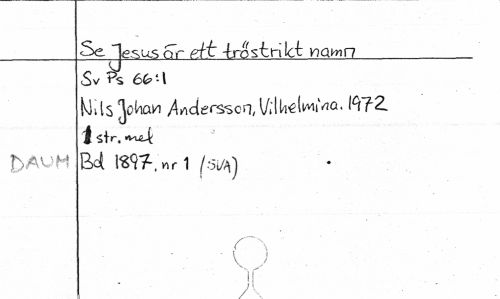 Se Jesus är ett tröstrikt namn
Sv Ps 66:1
Nils Johan Andersson, Vilhelmina. 1972
1 str. mel
DAUM Bd 1897, nr 1 (SVA)